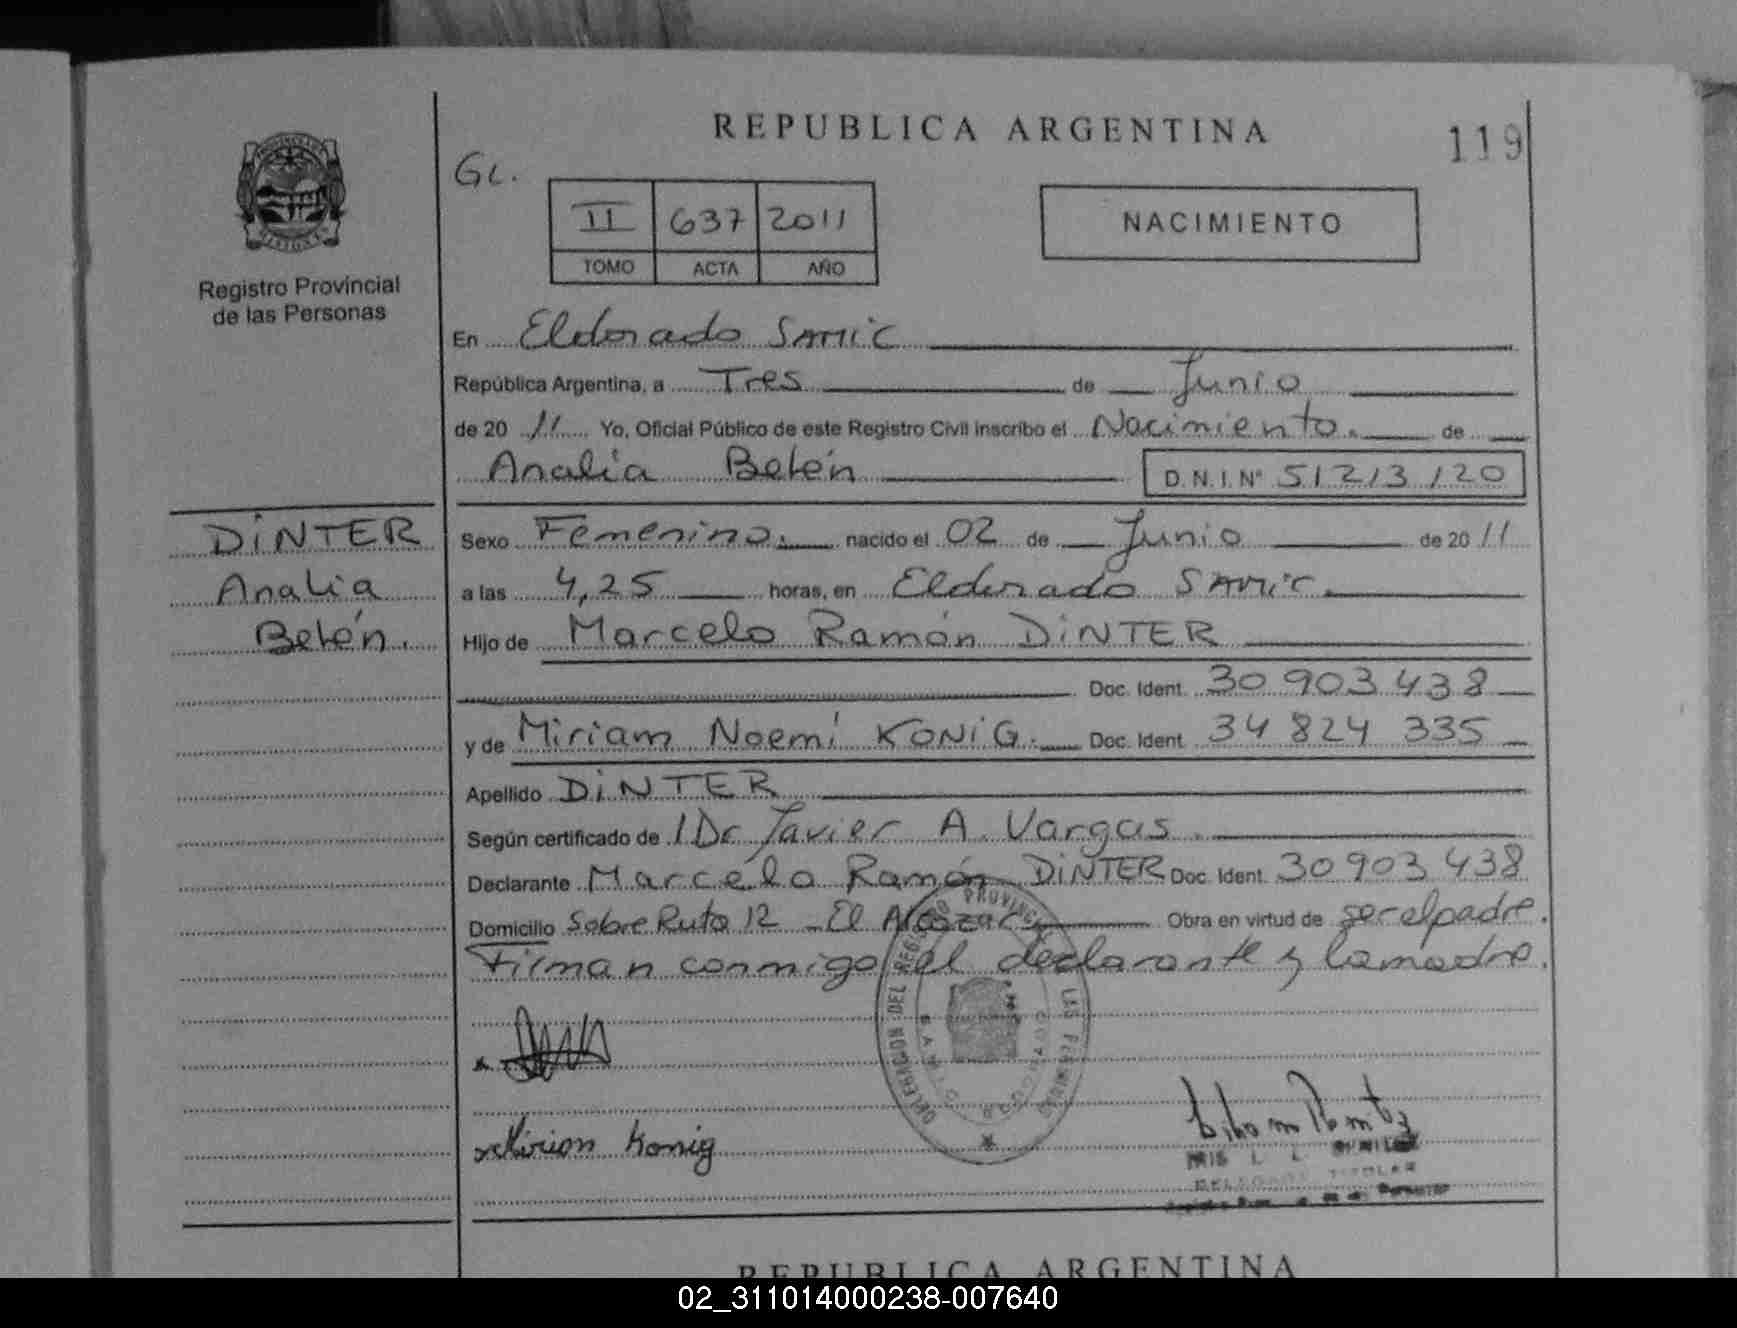 REPUBLICA ARGENTINA
119
GL.
II 637 2011
TOMO ACTA AÑO
NACIMIENTO
Registro Provincial
de las Personas
En Eldorado SAMIC
República Argentina, a Tres de Junio
de 20 11 Yo, Oficial Público de este Registro Civil inscribo el Nacimiento. de
Analía Belén D.N.I. Nº 51213120
DiNTER
Analía
Belén.
Sexo Femenino. nacido el 02 de Junio de 20 11
a las 4,25 horas, en Eldorado SAMIC
Hijo de Marcelo Ramón DiNTER
Doc. Ident. 30 903 438
y de Miriam Noemí KONiG. Doc. Ident. 34 824 335
Apellido DiNTER
Según certificado de 1 Dr Javier A Vargas.
Declarante Marcelo Ramón DiNTER Doc. Ident. 30 903 438
Domicilio Sobre Ruta 12 - El Alcazar Obra en virtud de ser el padre.
Firman conmigo el declarante y la madre.
Mirian Konig
REPUBLICA ARGENTINA
02_311014000238-007640